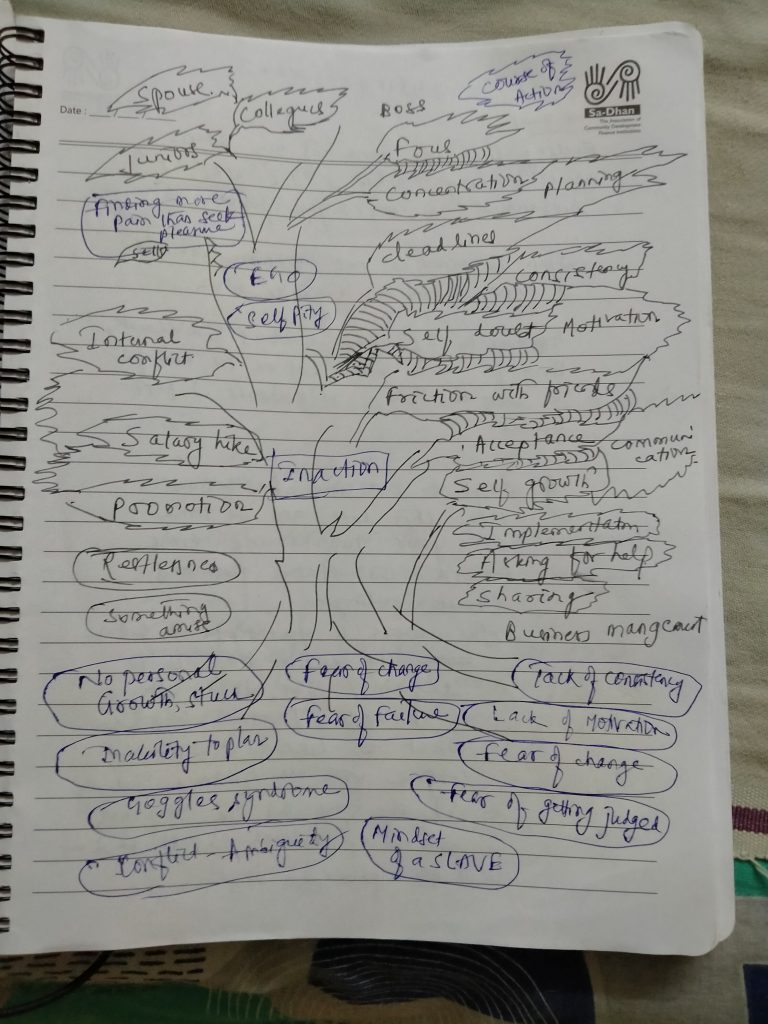 Course of
Action
Sa-Dhan
The Association of
Community Development
Finance Institutions
Date :
Spouse
Collegues
BOSS
Juniors
Fous
Concentration
planning
Avoiding more
pain than seek
pleasure
self
deadlines
EGO
consistency
Self Pity
Self doubt
Motivation
Internal
conflict
friction with friends
Salary hike
Acceptance
communi
cation
Inaction
Self growth
Promotion
Implementatn
Restlessness
Asking for help
Sharing
Something
amiss
Business mangement
No personal
Growth, stuck
Fear of change
Lack of consistency
Fear of failure
Lack of MOTIVATION
Inability to plan
Fear of change
Goggles syndrome
Fear of getting judged
Conflict - Ambiguety
Mindset
of a SLAVE